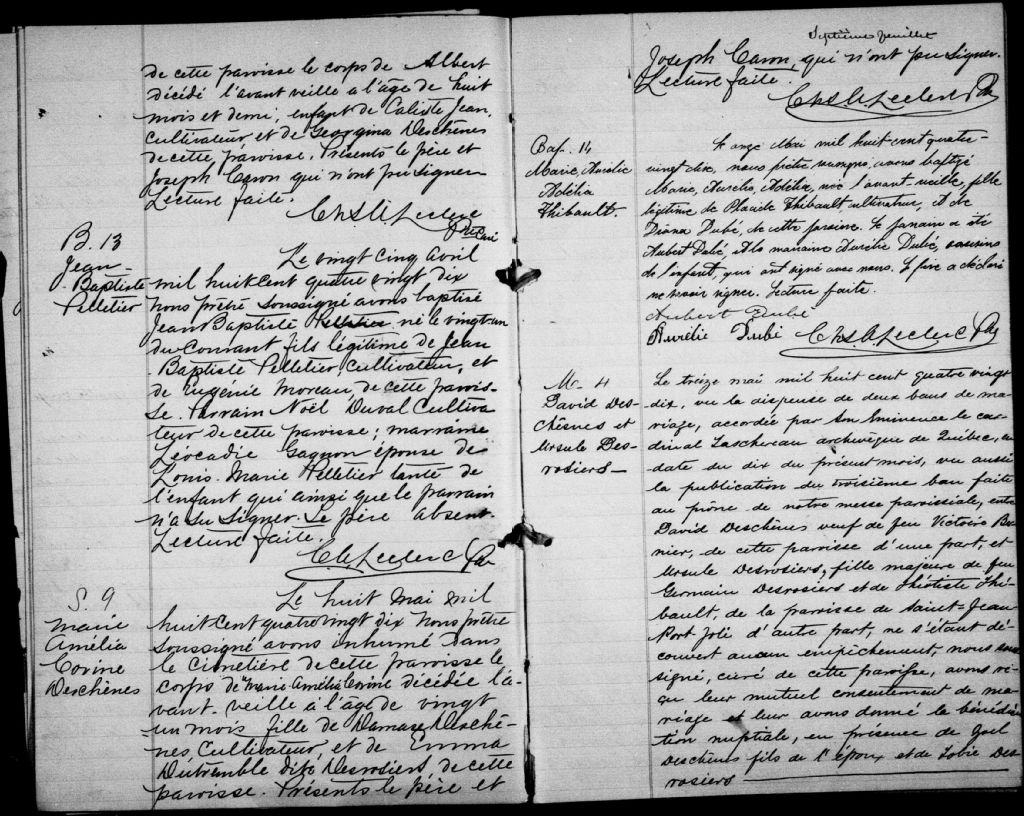 de cette paroisse le corps de Albert
décédé l'avant veille a l'âge de huit
mois et demi, enfant de Caliste Jean,
cultivateur et de Georgina Deschênes
de cette paroisse. Présents le père et
Joseph Caron qui n'ont pu signer
Lecture faite.
Chs A Leclerc
Ptre Curé
B. 13
Jean-
Baptiste
Pelletier
Le vingt cinq Avril
mil huit cent quatre vingt dix
nous prêtre soussigné avons baptisé
Jean Baptiste Pelletier né le vingt un
du courant fils légitime de Jean
Baptiste Pelletier Cultivateur, et
de Eugénie Moreau de cette parois-
se. Parrain Noël Duval Cultiva
teur de cette paroisse; marraine
Léocadie Gagnon épouse de
Louis-Marie Pelletier tante de
l'enfant qui ainsi que le parrain
n'a su signer. Le père absent.
Lecture faite.
C. A. Leclerc Ptr
S. 9
Marie
Amélia
Corine
Deschênes
Le huit Mai mil
huit cent quatre vingt dix nous prêtre
soussigné avons inhumé dans
le cimetière de cette paroisse le
corps de Marie Amélia Corine décédée l'a-
vant-veille à l'âge de vingt
un mois fille de Damase Deschê-
nes Cultivateur et de Emma
Dutremble dite Desrosiers de cette
paroisse. Présents le père et
Septième feuillet
Joseph Caron, qui n'ont pu signer.
Lecture faite.
Chs A Leclerc Ptr
Bap. 14
Marie, Aurélie
Adélia
Thibault.
Le onze Mai mil huit cent quatre-
vingt dix, nous prêtre soussigné, avons baptizé
Marie, Aurélie, Adélia, née l'avant-veille, fille
légitime de Placide Thibault cultivateur, et de
Diana Dubé, de cette paroisse. Le parrain a été
Aubert Dubé, et la marraine Aurélie Dubé, cousins
de l'enfant, qui ont signé avec nous. Le père a déclaré
ne savoir signer. Lecture faite.
Aubert Dubé
Aurélie Dubé Chs A Leclerc Ptr
M. 4
David Des-
chênes et
Ursule Des-
rosiers
Le treize mai mil huit cent quatre vingt
dix, vu la dispense de deux bans de ma-
riage, accordée par Son Eminence le car-
dinal Taschereau archevêque de Québec, en
date du dix du présent mois, vu aussi
la publication du troisième ban faite
au prône de notre messe paroissiale, entre
David Deschênes veuf de feu Victoire Ber-
nier, de cette paroisse d'une part, et
Ursule Desrosiers, fille majeure de feu
Germain Desrosiers et de Théotiste Thi-
bault, de la paroisse de Saint-Jean
Port Joli d'autre part, ne s'étant dé-
couvert aucun empêchement, nous sous
signé, curé de cette paroisse, avons re-
çu leur mutuel consentement de ma-
riage et leur avons donné la bénédic
tion nuptiale, en présence de
Deschênes fils de l'époux et de Des-
rosiers